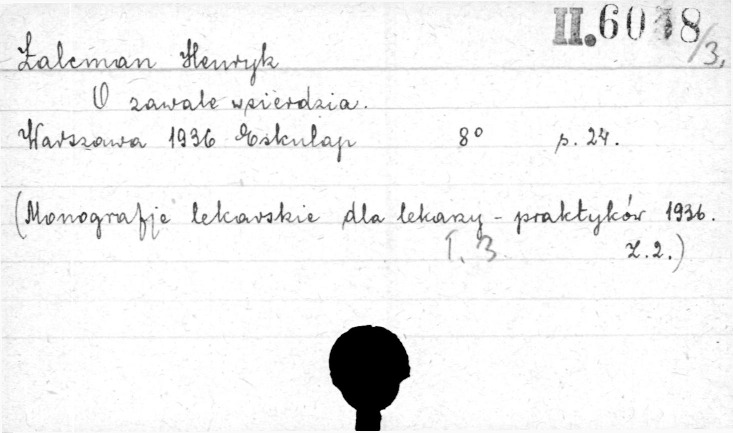 II.6048/3,
Zalcman Henryk
O zawale wsierdzia.
Warszawa 1936 Eskulap 8° p. 24.
(Monografje lekarskie dla lekarzy - praktyków 1936.
T. 3 Z. 2.)